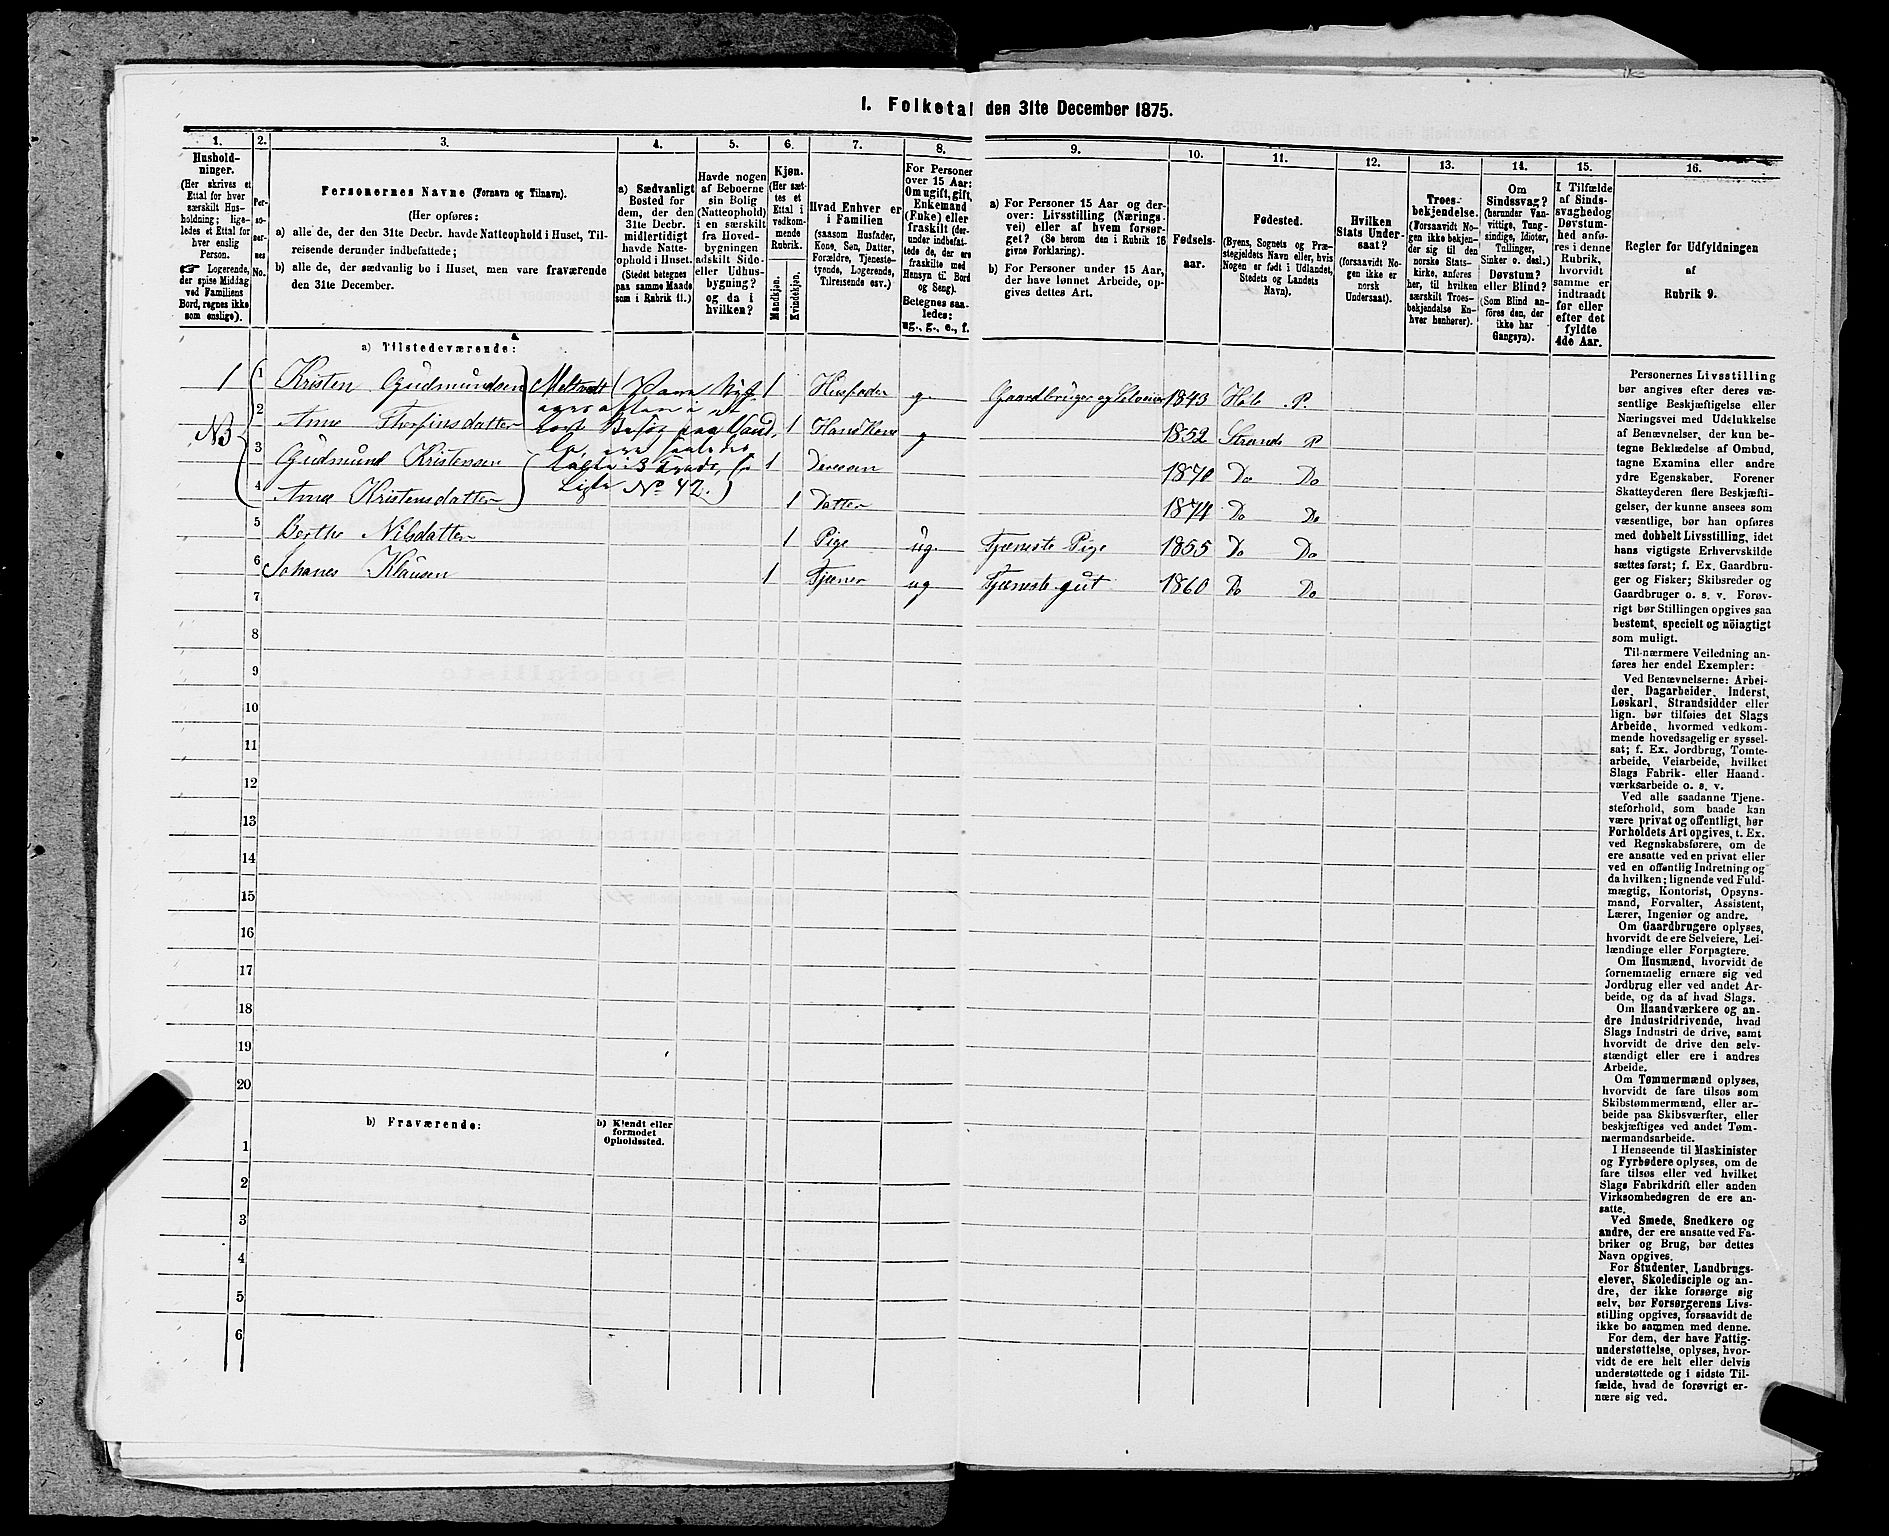 1. Folketal den 31te December 1875.
1.
Hushold-
ninger.
(Her skrives et
Ettal for hver
særskilt Hus-
holdning; lige-
ledes et Ettal for
hver enslig
Person.
☛ Logerende,
der spise Middag
ved Familiens
Bord, regnes ikke
som enslige).
2.
Per-
so-
ner-
nes
No.
3.
Personernes Navne (Fornavn og Tilnavn).
(Her opføres:
a) alle de, der den 31te Decbr. havde Natteophold i Huset, Til-
reisende derunder indbefattede;
b) alle de, der sædvanlig bo i Huset, men vare fraværende
den 31te December.
4.
a) Sædvanligt
Bosted for
dem, der den
31te Decbr.
midlertidigt
havde Natte-
ophold i Huset.
(Stedet betegnes
paa samme Maade
som i Rubrik 11.)
5.
Havde nogen
af Beboerne
sin Bolig
(Natteophold)
i en særskilt
fra Hoved-
bygningen
adskilt Side-
eller Udhus-
bygning?
og da i
hvilken?
6.
Kjøn.
(Her sæt-
tes et
Ettal i
vedkom-
mende
Rubrik.
Mandkjøn.
Kvindekjøn.
7.
Hvad Enhver er
i Familien
(saasom Husfader,
Kone, Søn, Datter,
Forældre, Tjeneste-
tyende, Logerende,
Tilreisende osv.)
8.
For Personer
over 15 Aar:
Om ugift, gift,
Enkemand
(Enke) eller
fraskilt (der-
under indbefat-
tede de, der ere
fraskilte med
Hensyn til Bord
og Seng).
Betegnes saa-
ledes:
ug., g., e., f.
9.
a) For Personer 15 Aar og der-
over: Livsstilling (Nærings-
vei) eller af hvem forsør-
get? (Se herom den i Rubrik 16
givne Forklaring).
b) For Personer under 15 Aar,
der have lønnet Arbeide, op-
gives dettes Art.
10.
Fødsels-
aar.
11.
Fødested.
(Byens, Sognets og Præ-
stegjeldets Navn eller, hvis
Nogen er født i Udlandet,
Stedets og Landets
Navn).
12.
Hvilken
Stats Under-
saat?
(forsaavidt No-
gen ikke er
norsk
Undersaat).
13.
Troes-
bekjendelse.
(Forsaavidt No-
gen ikke bekjen-
der sig til den
norske Stats-
kirke, anføres
her, til hvilken
særskilt Troes-
bekjendelse En-
hver henhører).
14.
Om
Sindssvag?
(herunder Van-
vittige, Tung-
sindige, Idioter,
Tullinger,
Sinker o. desl.)
Døvstum?
eller Blind?
(Som Blind an-
føres den, der
ikke har
Gangsyn).
15.
I Tilfælde
af Sinds-
svaghed og
Døvstum-
hed anfø-
res i denne
Rubrik,
hvorvidt
samme er
indtraadt
før eller
efter det
fyldte
4de Aar.
16.
Regler for Udfyldningen
af
Rubrik 9.
a) Tilstedeværende:
1 1 Kristen Gudmundsen 1 Husfader g. Gaardbruger og Selveier 1843 Hole P.
NB 2 Anne Thorfinsdatter 1 g 1852 Strands P
3 Gudmund Kristensen 1 1870 Do Do
No 42.
4 Anne Kristensdatter 1 Datter 1874 Do Do
5 Berthe Nilsdatter 1 Pige ug. Tjeneste Pige 1855 Do Do
6 Johanes Klausen 1 Tjener ug Tjenestegut 1860 Do Do
7
8
9
10
11
12
13
14
15
16
17
18
19
20
b) Fraværende:
b) Kjendt eller
formodet
Opholdssted.
1
2
3
4
5
6
Personernes Livsstilling
bør angives efter deres væ-
sentlige Beskjæftigelse eller
Næringsvei med Udelukkelse
af Benævnelser, der kun be-
tegne Beklædelse af Ombud,
tagne Examina eller andre
ydre Egenskaber. Forener
Skatteyderen flere Beskjæfti-
gelser, der kunne ansees som
væsentlige, bør han opføres
med dobbelt Livsstilling, idet
hans vigtigste Erhvervskilde
sættes først; f. Ex. Gaardbru-
ger og Fisker; Skibsreder og
Gaardbruger o. s. v. Forøv-
rigt bør Stillingen opgives saa
bestemt, specielt og nöiagtigt
som muligt.
Til nærmere Veiledning an-
føres her endel Exempler:
Ved Benævnelserne: Arbei-
der, Dagarbeider, Inderst,
Løskarl, Strandsidder eller
lign. bør tilføies det Slags
Arbeide, hvormed vedkom-
mende hovedsagelig er syssel-
sat; f. Ex. Jordbrug, Tomte-
arbeide, Veiarbeide, hvilket
Slags Fabrik- eller Haand-
værksarbeide o. s. v.
Ved alle saadanne Tjene-
steforhold, som baade kan
være privat og offentligt, bør
Forholdets Art opgives, t. Ex.
ved Regnskabsførere, om de
ere ansatte ved en privat eller
ved en offentlig Indretning og
da hvilken; lignende ved Fuld-
mægtig, Kontorist, Opsyns-
mand, Forvalter, Assistent,
Lærer, Ingeniør og andre.
Om Gaardbrugere oplyses,
hvorvidt de ere Selveiere, Lei-
lændinge eller Forpagtere.
Om Husmænd, hvorvidt de
fornemmelig ernære sig ved
Jordbrug eller ved andet Ar-
beide, og da af hvad Slags.
Om Haandværkere og an-
dre Industridrivende, hvad
Slags Industri de drive, samt
hvorvidt de drive den selv-
stændigt eller ere i andres
Arbeide.
Om Tømmermænd oplyses,
hvorvidt de fare tilsøs som
Skibstømmermænd, eller ar-
beide paa Skibsværfter, eller
beskjæftiges ved andet Tøm-
mermandsarbeide.
I Henseende til Maskinister
og Fyrbødere oplyses, om de
fare tilsøs eller ved hvilket
Slags Fabrikdrift eller anden
Virksomhedsgren de ere an-
satte.
Ved Smede, Snedkere og
andre, der ere ansatte ved Fa-
briker og Brug, bør dettes
Navn opgives.
For Studenter, Landbrugs-
elever, Skoledisciple og an-
dre, der ikke forsørge sig
selv, bør Forsørgerens Livs-
stilling opgives, forsaavidt de
ikke bo sammen med denne.
For dem, der have Fattig-
understøttelse, oplyses, hvor-
vidt de ere helt eller delvis
understøttede og i sidste Til-
fælde, hvad de forøvrigt er-
nære sig ved.